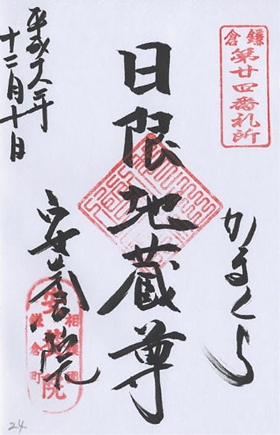 鎌倉
第廿四番札所
かまくら
日限地蔵尊
安養院
相模國
鎌倉町
平成十六年
十二月十日
24